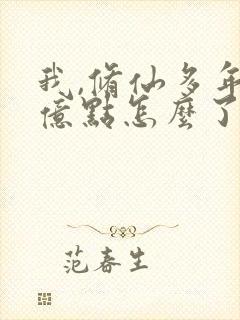 我,脩仙多年
億點怎麼了
范春生